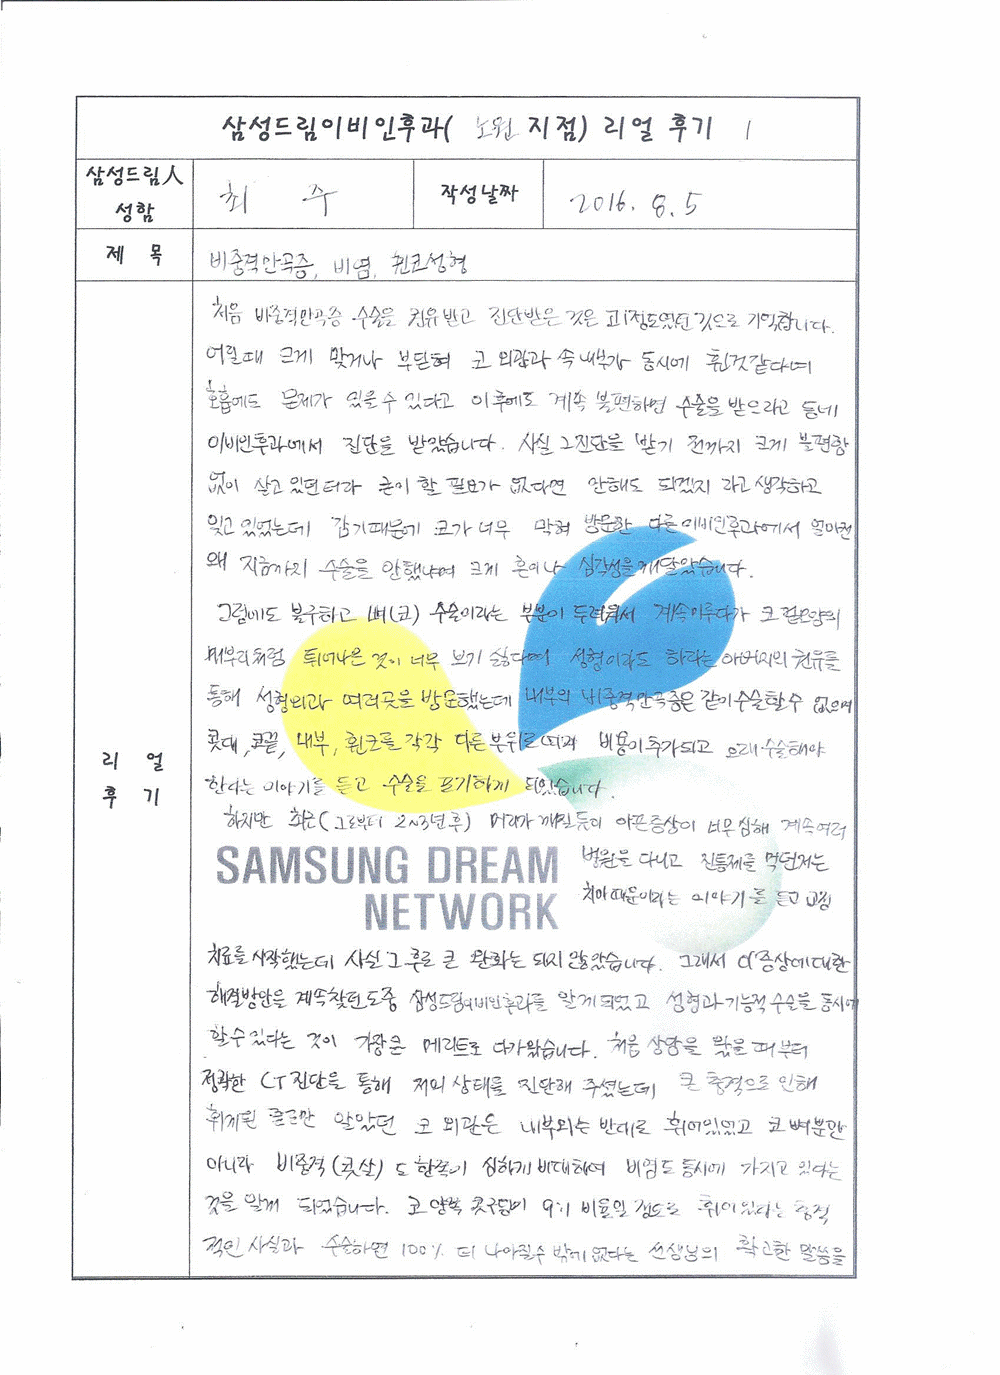 삼성드림이비인후과( 노원 지점) 리얼 후기 1
삼성드림人 성함
최 수
작성날짜
2016. 8. 5
제 목
비중격만곡증, 비염, 휜코성형
리 얼 후 기
처음 비중격만곡증 수술을 권유받고 진단받은 것은 고1정도였던 것으로 기억합니다.
어릴때 크게 맞거나 부딛혀 코 외관과 속 내부가 동시에 휜것같다며
호흡에도 문제가 있을수 있다고 이후에도 계속 불편하면 수술을 받으라고 동네
이비인후과에서 진단을 받았습니다. 사실 그진단을 받기 전까지 크게 불편함
없이 살고 있던터라 굳이 할 필요가 없다면 안해도 되겠지 라고 생각하고
잊고 있었는데 감기때문에 코가 너무 막혀 방문한 다른 이비인후과에서 얼마전
왜 지금까지 수술을 안했냐며 크게 혼이나 심각성을 깨달았습니다.
그럼에도 불구하고 뼈(코) 수술이라는 부분이 두려워서 계속미루다가 코 겉모양의
매부리처럼 튀어나온 것이 너무 보기 싫다며 성형이라도 하라는 아버지의 권유를
통해 성형외과 여러곳을 방문했는데 내부의 비중격만곡증은 같이 수술할수 없으며
콧대, 코끝, 내부, 휜코를 각각 다른 부위로 따라 비용이 추가되고 오래 수술해야
한다는 이야기를 듣고 수술을 포기하게 되었습니다.
하지만 최근(그로부터 2~3년후) 머리가 깨질듯이 아픈증상이 너무 심해 계속 여러
병원을 다니고 진통제를 먹던저는
SAMSUNG DREAM NETWORK
치아때문이라는 이야기를 듣고 교정
치료를 시작했는데 사실 그 후로 큰 완화는 되지 않았습니다. 그래서 이 증상에대한
해결방안을 계속찾던도중 삼성드림이비인후과를 알게되었고 성형과 기능적 수술을 동시에
할수있다는 것이 가장큰 메리트로 다가왔습니다. 처음 상담을 왔을 때부터
정확한 CT 진단을 통해 저의 상태를 진단해 주셨는데 큰 충격으로 인해
휘게된 줄로만 알았던 코 외관은 내부와는 반대로 휘어있었고 코 뼈뿐만
아니라 비중적(콧살)도 한쪽이 심하게 비대하여 비염도 동시에 가지고 있다는
것을 알게 되었습니다. 코 양쪽 콧구멍이 9:1 비율일 정도로 휘어있다는 충격
적인 사실과 수술하면 100% 더 나아질수 밖에 없다는 선생님의 확고한 말씀을